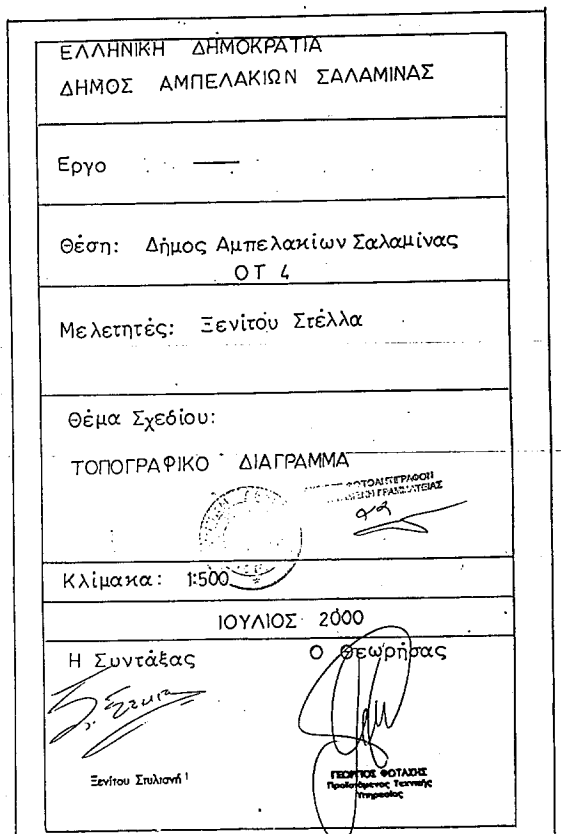 ΕΛΛΗΝΙΚΗ ΔΗΜΟΚΡΑΤΙΑ
ΔΗΜΟΣ ΑΜΠΕΛΑΚΙΩΝ ΣΑΛΑΜΙΝΑΣ
Εργο —
Θέση: Δήμος Αμπελακίων Σαλαμίνας
ΟΤ 4
Μελετητές: Ξενίτου Στέλλα
Θέμα Σχεδίου:
ΤΟΠΟΓΡΑΦΙΚΟ ΔΙΑΓΡΑΜΜΑ
Κλίμακα: 1:500
ΙΟΥΛΙΟΣ 2000
Η Συντάξας Ο Θεωρήσας
Ξενίτου Στυλιανή
ΓΕΩΡΓΙΟΣ ΦΟΤΑΚΗΣ
Προϊστάμενος Τεχνικής
Υπηρεσίας